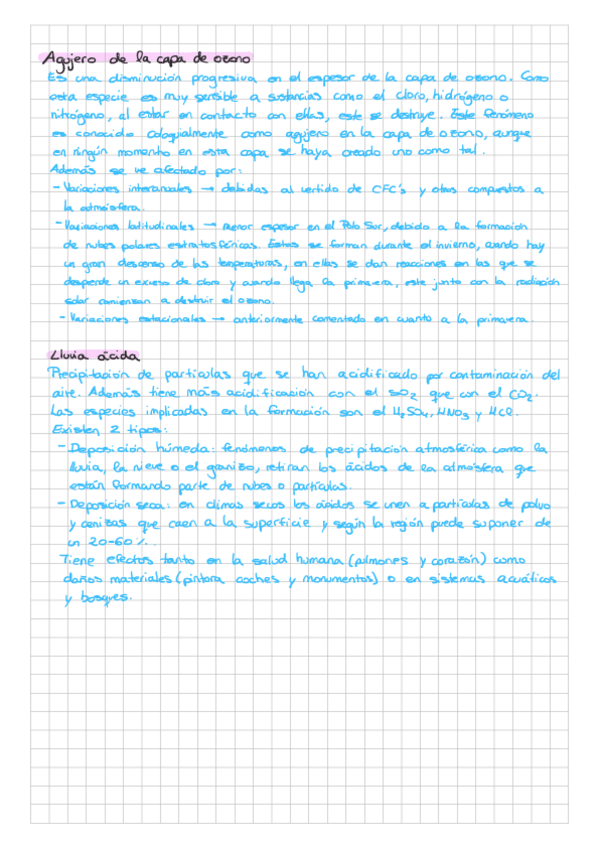 Agujero de la capa de ozono
Es una disminución progresiva en el espesor de la capa de ozono. Como
esta especie es muy sensible a sustancias como el cloro, hidrógeno o
nitrógeno, al estar en contacto con ellas, este se destruye. Este fenómeno
es conocido coloquialmente como agujero en la capa de ozono, aunque
en ningún momento en esta capa se haya creado uno como tal.
Además se ve afectado por:
- Variaciones interanuales → debidas al vertido de CFC's y otros compuestos a
la atmósfera.
- Variaciones latitudinales → menor espesor en el Polo Sur, debido a la formación
de nubes polares estratosféricas. Estas se forman durante el invierno, cuando hay
un gran descenso de las temperaturas, en ellas se dan reacciones en las que se
desprende un exceso de cloro y cuando llega la primavera, este junto con la radiación
solar comienzan a destruir el ozono.
- Variaciones estacionales → anteriormente comentado en cuanto a la primavera.
Lluvia ácida
Precipitación de partículas que se han acidificado por contaminación del
aire. Además tiene más acidificación con el SO₂ que con el CO₂.
Las especies implicadas en la formación son el H₂SO₄, HNO₃ y HCl.
Existen 2 tipos:
- Deposición húmeda: fenómenos de precipitación atmosférica como la
lluvia, la nieve o el granizo, retiran los ácidos de la atmósfera que
están formando parte de nubes o partículas.
- Deposición seca: en climas secos los ácidos se unen a partículas de polvo
y cenizas que caen a la superficie y según la región puede suponer de
un 20-60%.
Tiene efectos tanto en la salud humana (pulmones y corazón) como
daños materiales (pintura coches y monumentos) o en sistemas acuáticos
y bosques.